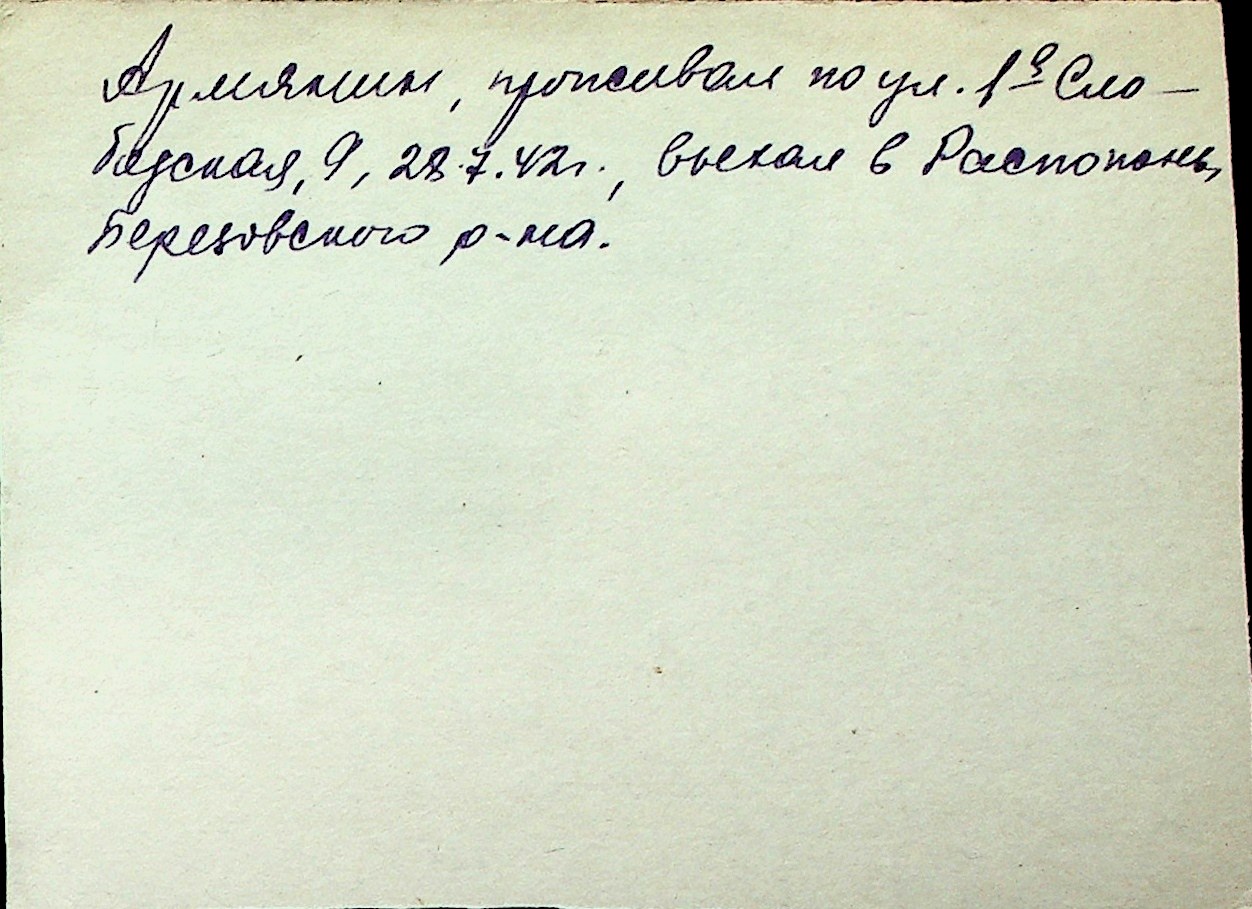 Армянин, проживал по ул. 1я Сло-
бодская, 9, 28.7.42г., выехал в
Березовского р-на.